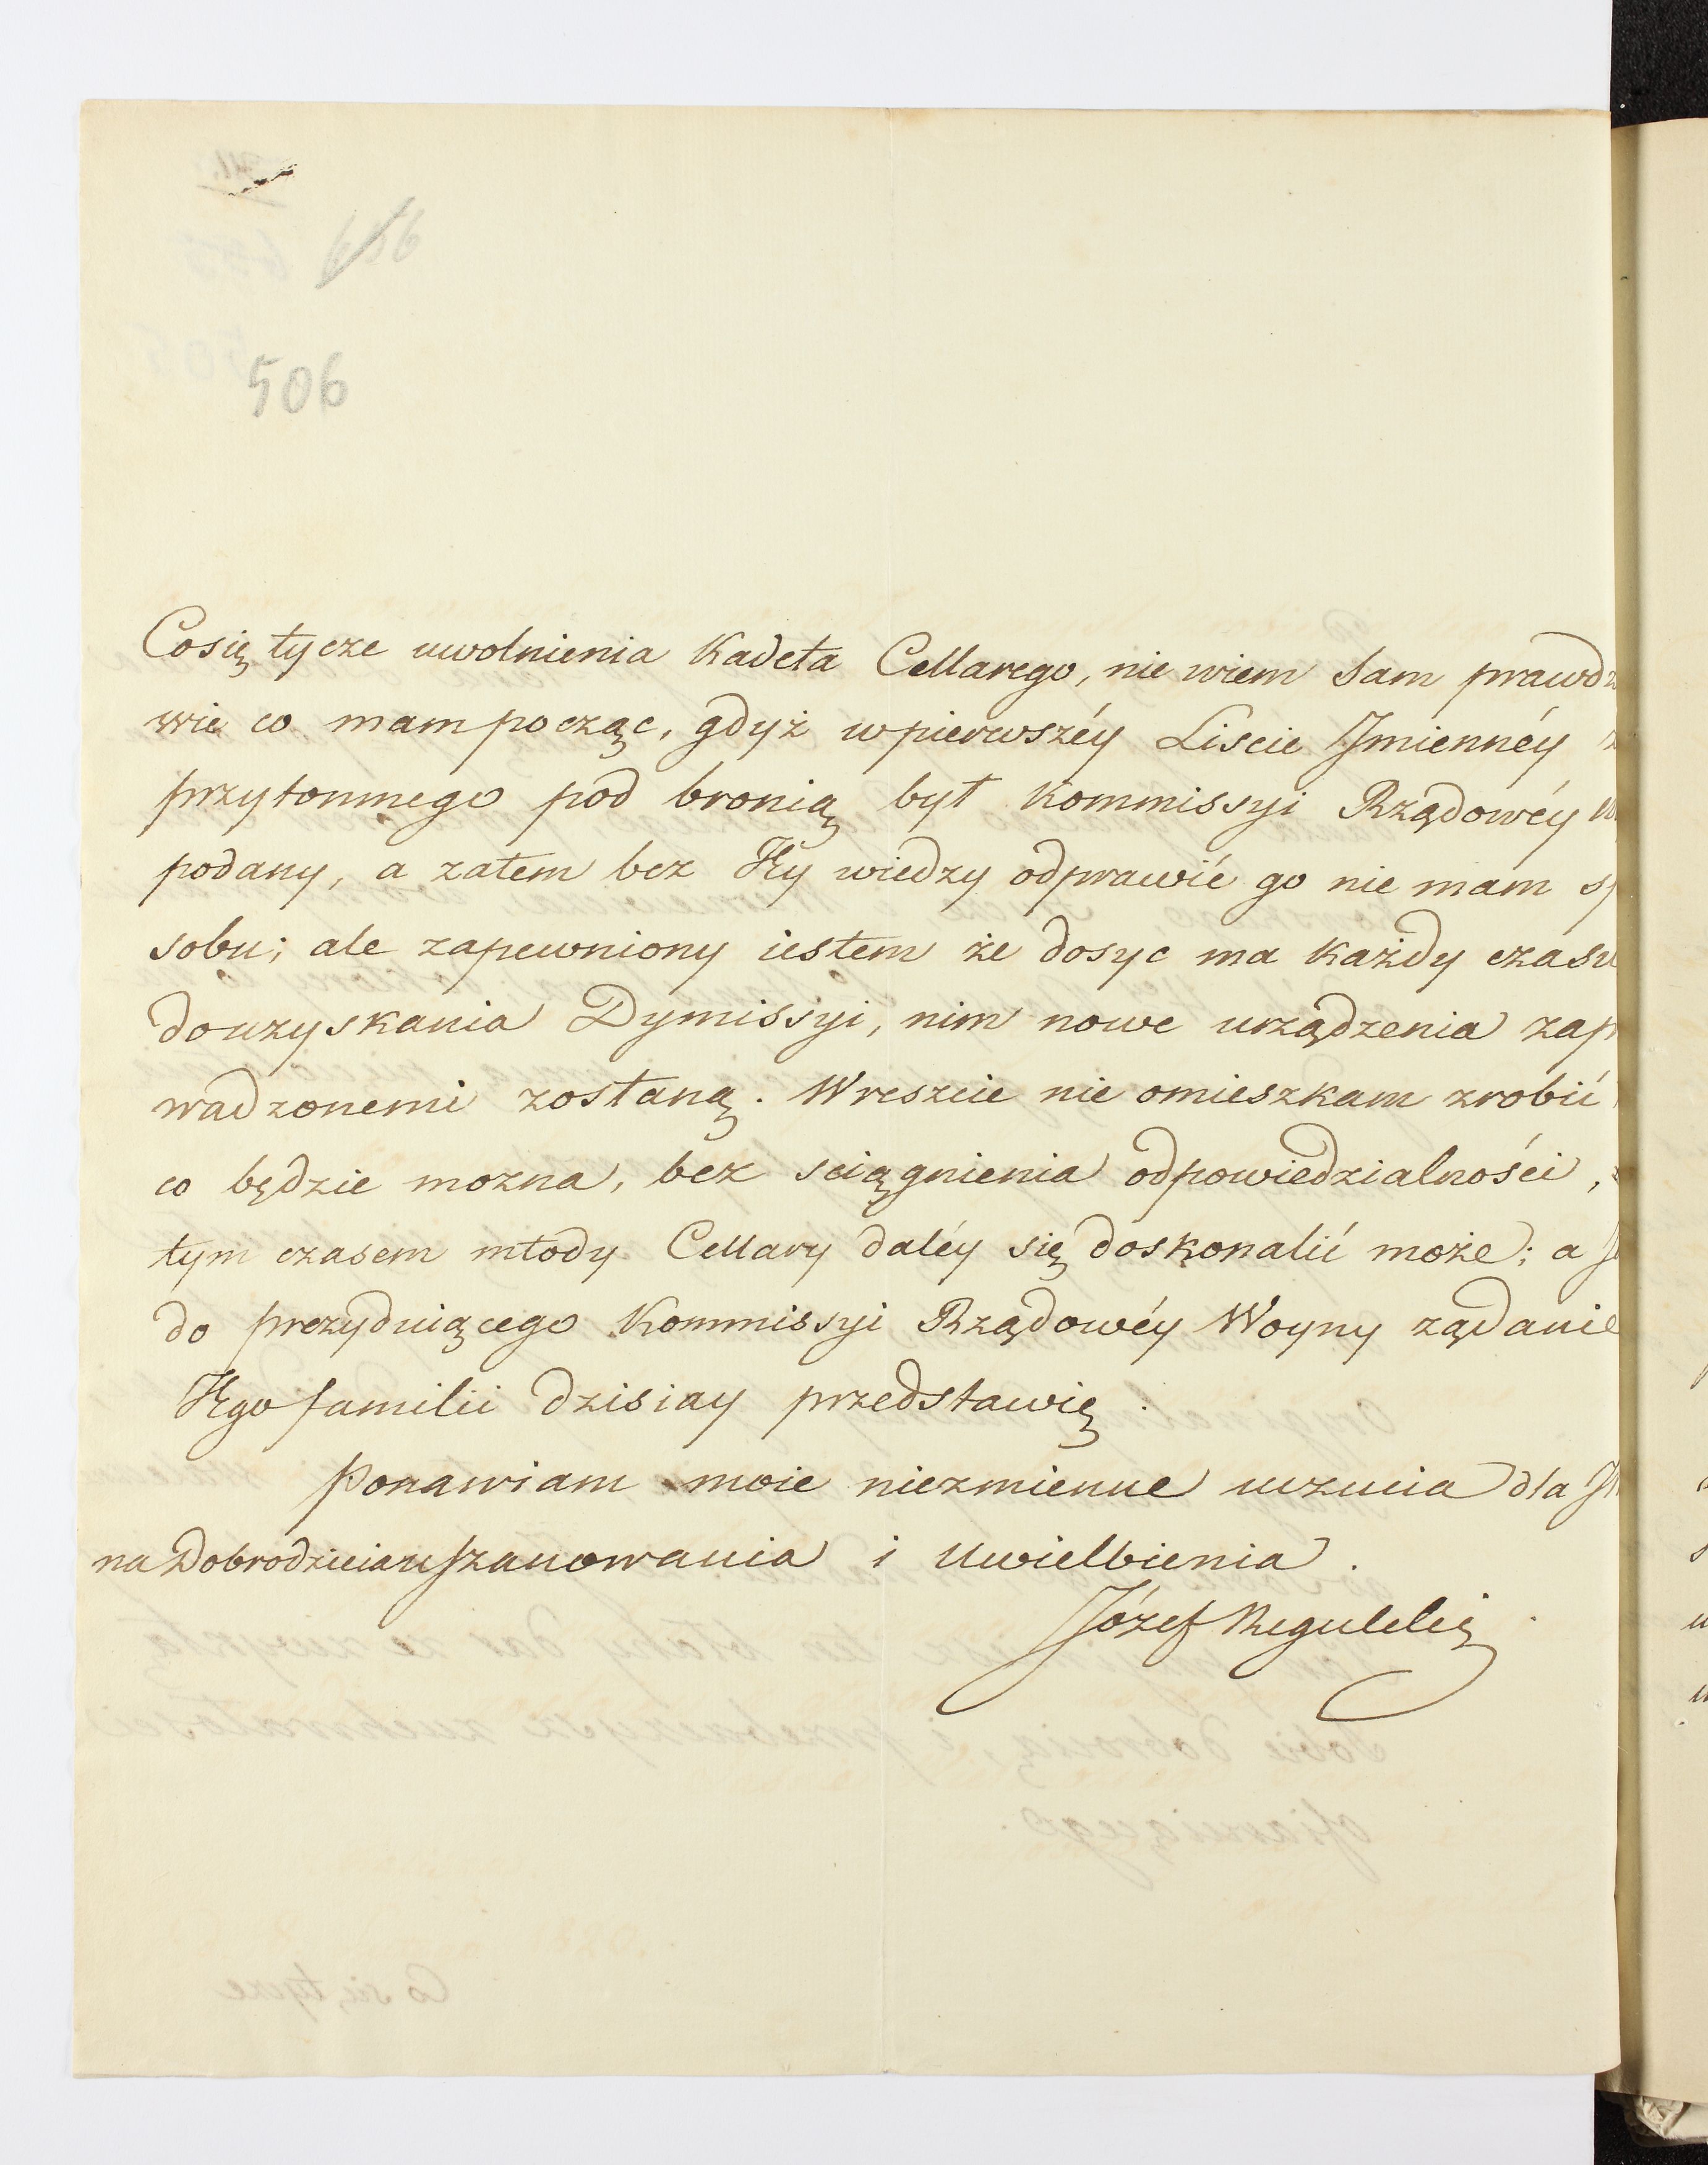 656
506
Co się tycze uwolnienia Kadeta Cellarego, nie wiem sam prawdz
wie co mam począc, gdyż w pierwszéy Liscie Jmiennéy
przytomnego pod bronią był Kommissyi Rządowéy
podany, a zatem bez Jéy wiedzy odprawić go nie mam sp
sobu; ale zapewniony iestem że dosyc ma każdy czasu
do uzyskania Dymissyi, nim nowe urządzenia zap
wadzonemi zostaną. Wreszcie nie omieszkam zrobić
co będzie mozna, bez sciągnienia odpowiedzialności,
tym czasem młody Cellary daléy się doskonalić może; a
do prezyduiącego Kommissyi Rządowéy Woyny ządanie
Jego familii dzisiay przedstawię.
Ponawiam moie niezmienne uczucia dla
na Dobrodzieia uszanowania i Uwielbienia.
Józef Regulelię